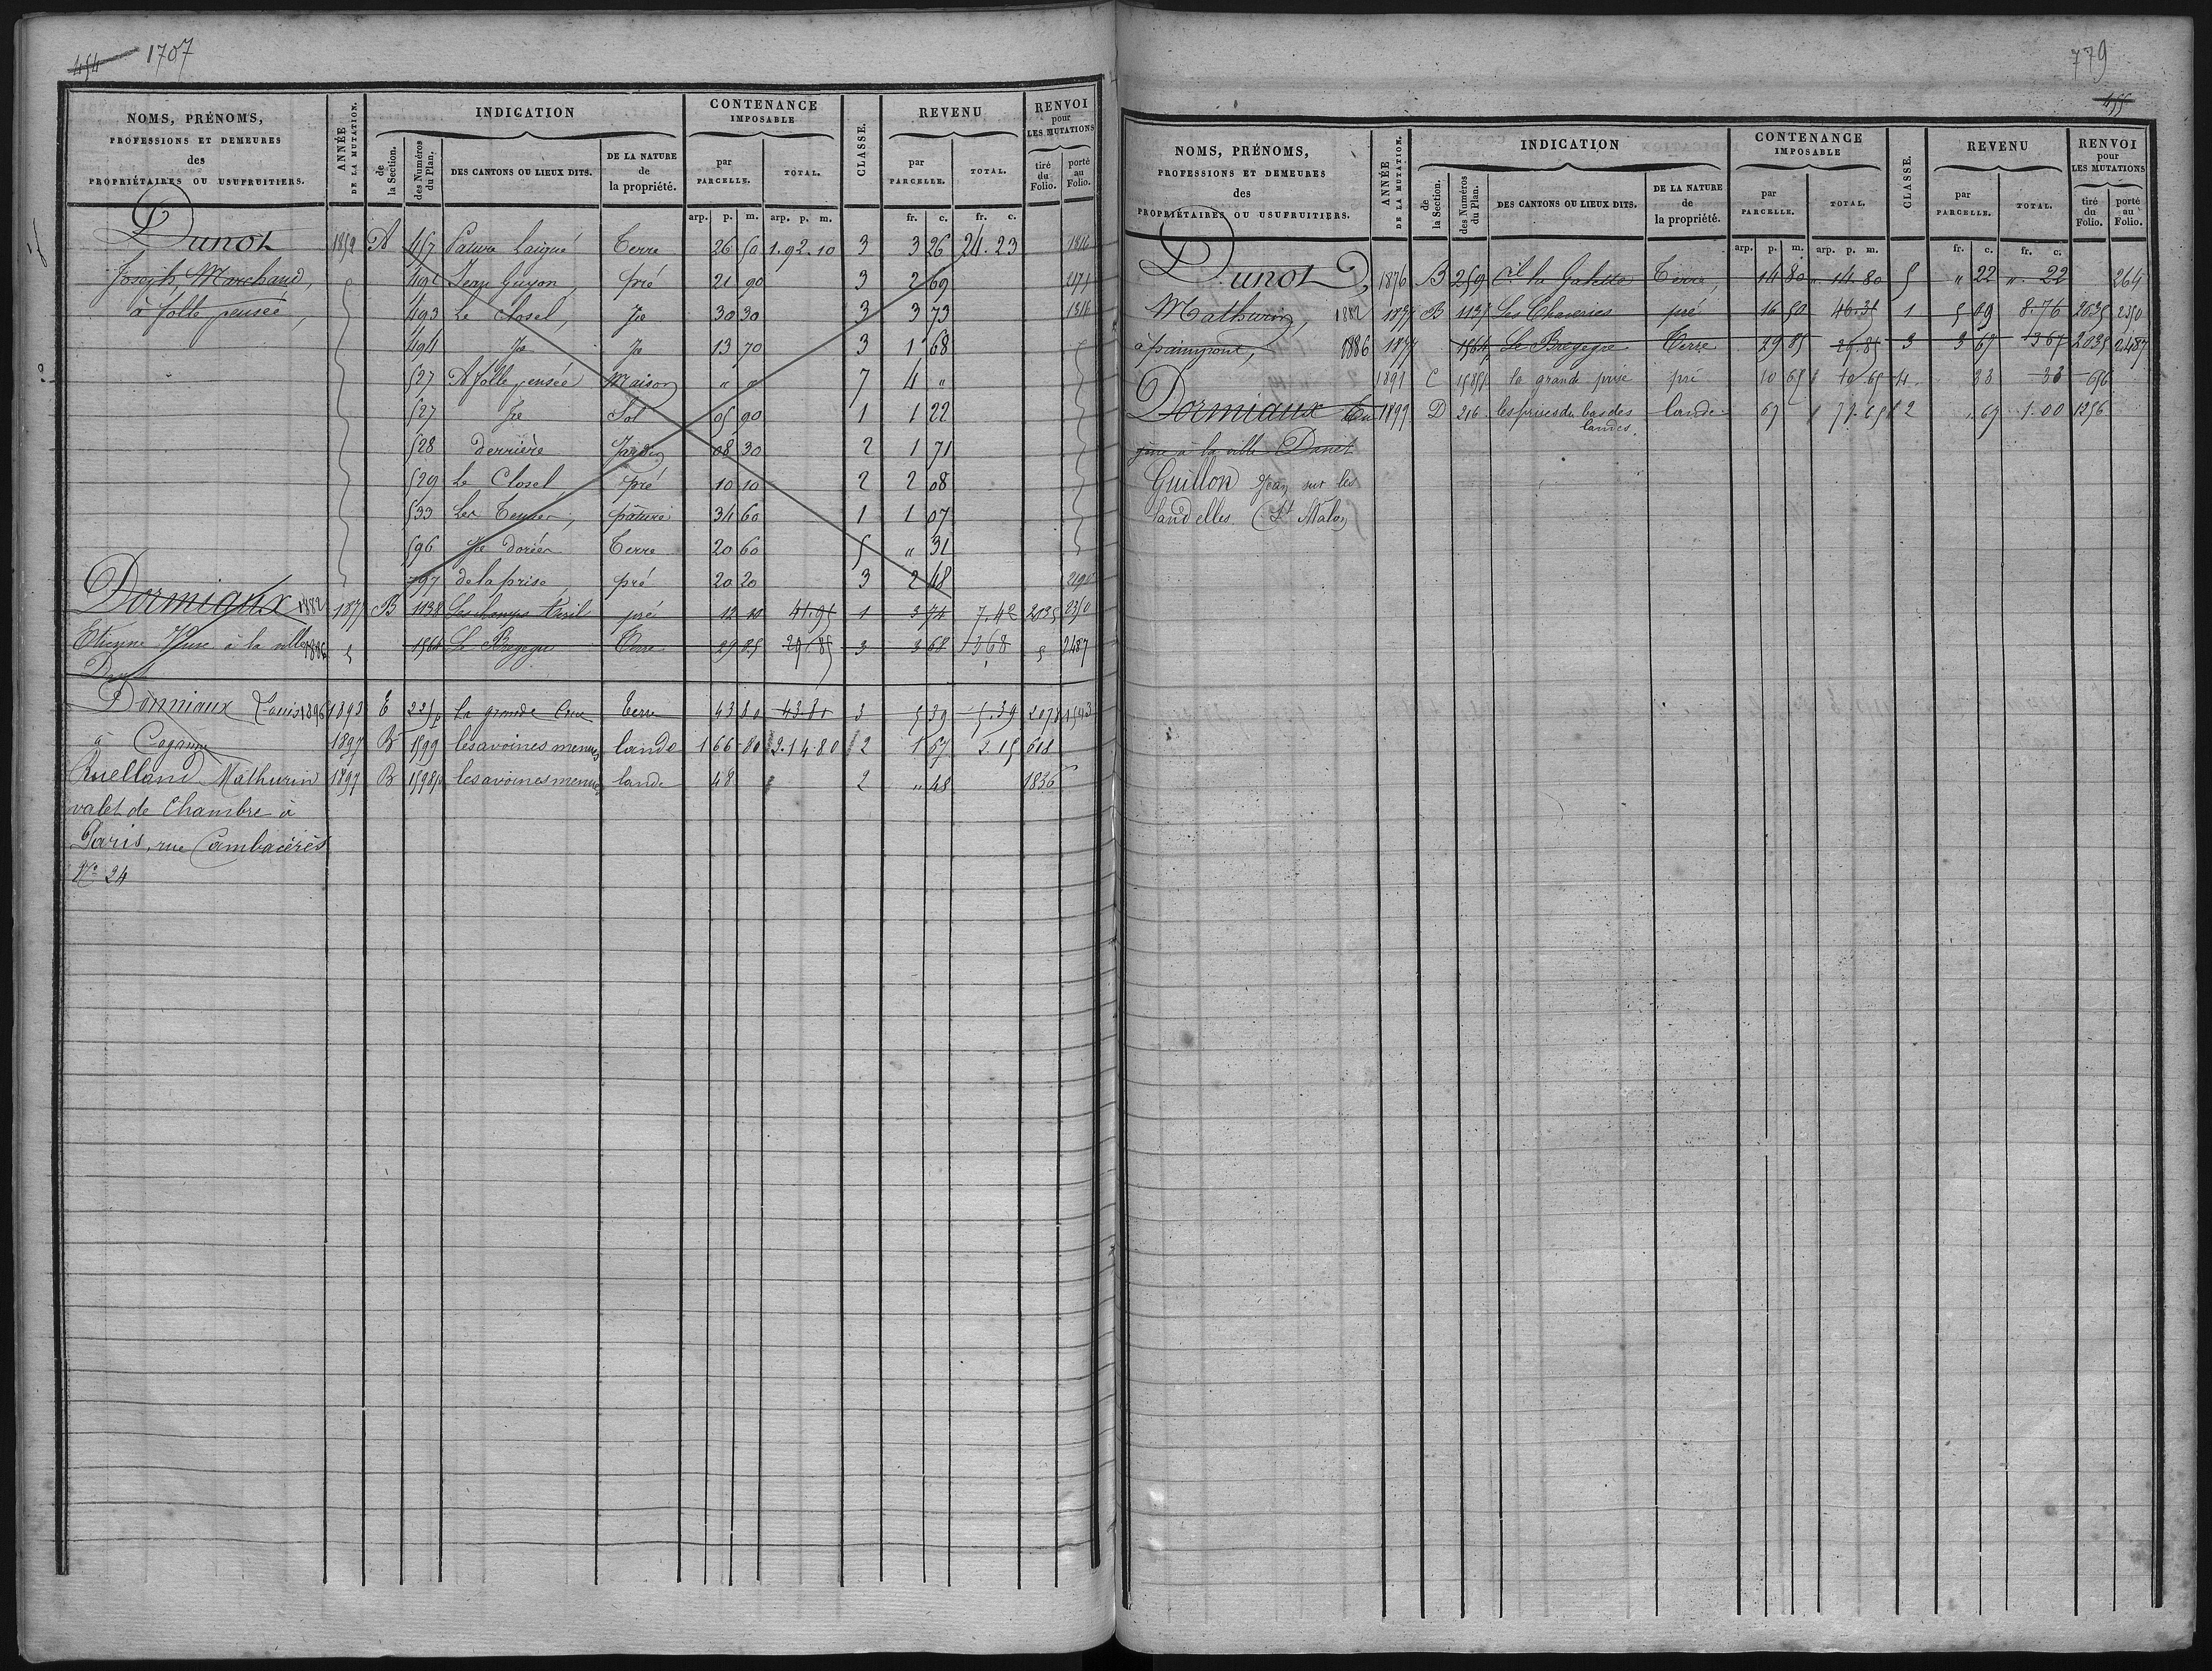 454 1707
NOMS, PRÉNOMS, PROFESSIONS ET DEMEURES des PROPRIÉTAIRES OU USUFRUITIERS. ANNÉE DE LA MUTATION. INDICATION CONTENANCE IMPOSABLE CLASSE. REVENU RENVOI pour LES MUTATIONS
de la Section. des Numéros du Plan. DES CANTONS OU LIEUX DITS. DE LA NATURE de la propriété. par PARCELLE. TOTAL. par PARCELLE. TOTAL. tiré du Folio. porté au Folio.
arp. p. m. arp. p. m. fr. c. fr. c.
Dunot 1859 A 467 Pature Laigué Terre 26 50 1.92.10 3 3 26 24.23
Joseph Marchand, Jean Guyon, pré 21 90 3 2 69
à folle pensée, 493 Le Closel, Je 30 30 3 3 73
494 Je Je 13 70 3 1 68
527 A folle pensée Maison " " 7 4 "
527 Je Sol 05 90 1 1 22
528 derrière Jardin 08 30 2 1 71
529 Le Closel pré 10 10 2 2 08
533 Les pâture 34 60 1 1 07
596 Terre 20 60 5 " 31
797 de la prise pré 20 20 3 2 48
Dormiaux 1882 1877 B 1138 Les champs pré 3 74 7.42 2035 2350
Etienne à la ville 1886 1564 Le Bregegre Terre 29 85 29.85 3 3 68 3 68 2487
Dormiaux Louis 1896 1893 E 225p la grande Terre 43 80 43.80 3 5 39 5.39 2078
à 1897 B 1599 les avoines menues lande 1 66 80 2.14.80 2 1 67 2.15 618
Ruelland Mathurin 1897 B 1598p les avoines menues lande 48 2 " 48 1836
valet de Chambre à
Paris, rue Cambacérès
No 24
779
455
NOMS, PRÉNOMS, PROFESSIONS ET DEMEURES des PROPRIÉTAIRES OU USUFRUITIERS. ANNÉE DE LA MUTATION. INDICATION CONTENANCE IMPOSABLE CLASSE. REVENU RENVOI pour LES MUTATIONS
de la Section. des Numéros du Plan. DES CANTONS OU LIEUX DITS. DE LA NATURE de la propriété. par PARCELLE. TOTAL. par PARCELLE. TOTAL. tiré du Folio. porté au Folio.
arp. p. m. arp. p. m. fr. c. fr. c.
Dunot, 1876 B 259 la Terre, 14 80 14.80 5 " 22 ". 22 264
Mathurin, 1882 1877 B 1137 Les Chaveries pré 16 50 46.35 1 5 09 8.76 2035 2350
à paimpont, 1886 1877 1564 Le Bregegre Terre 29 85 29.85 3 3 67 3 67 2035 2487
1891 C 1585p la grande prise pré 10 65 10.65 4 33 33 656
Dormiaux Eu 1899 D 216 les prises du bas des landes. lande 67 71.65 2 67 1.00 1256
gène à la ville Danet
Guillon Jean sur les
landelles (St Malon